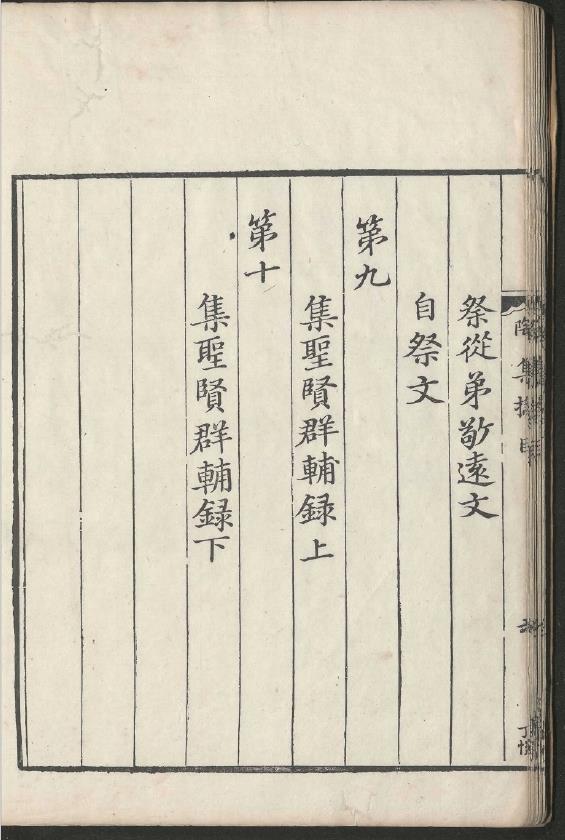 祭從弟敬遠文
自祭文
第九
集聖賢群輔録上
第十
集聖賢群輔録下